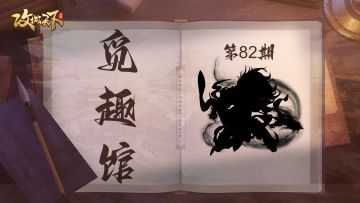 攻城天下
觅趣馆
第82期